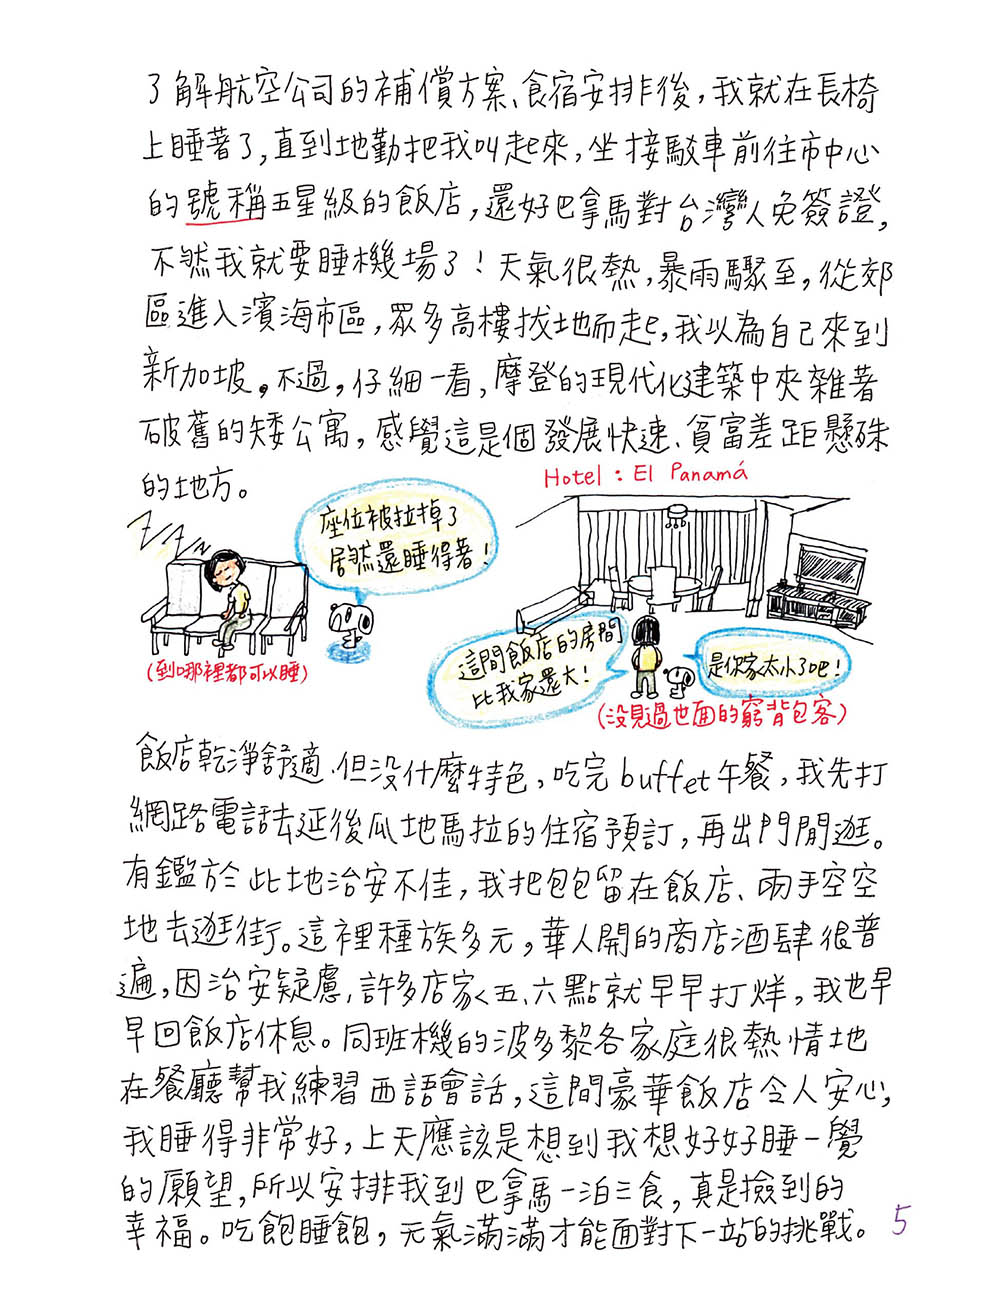 了解航空公司的補償方案、食宿安排後，我就在長椅
上睡著了，直到地勤把我叫起來，坐接駁車前往市中心
的號稱五星級的飯店，還好巴拿馬對台灣人免簽證，
不然我就要睡機場了！天氣很熱，暴雨驟至，從郊
區進入濱海市區，眾多高樓拔地而起，我以為自己來到
新加坡。不過，仔細一看，摩登的現代化建築中夾雜著
破舊的矮公寓，感覺這是個發展快速、貧富差距懸殊
的地方。
Hotel：El Panamá
ZZZZ
座位被拉掉了
居然還睡得著！
(到哪裡都可以睡)
這間飯店的房間
比我家還大！
是你家太小了吧！
(沒見過世面的窮背包客)
飯店乾淨舒適、但沒什麼特色，吃完buffet午餐，我先打
網路電話去延後瓜地馬拉的住宿預訂，再出門閒逛。
有鑑於此地治安不佳，我把包包留在飯店、兩手空空
地去逛街。這裡種族多元，華人開的商店酒肆很普
遍，因治安疑慮，許多店家五、六點就早早打烊，我也早
早回飯店休息。同班機的波多黎各家庭很熱情地
在餐廳幫我練習西語會話，這間豪華飯店令人安心，
我睡得非常好，上天應該是想到我想好好睡一覺
的願望，所以安排我到巴拿馬一泊三食，真是撿到的
幸福。吃飽睡飽，元氣滿滿才能面對下一站的挑戰。
5